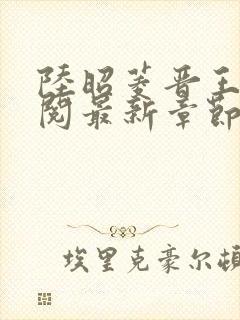 陸昭菱晋王
閱最新章節
埃里克豪尔頓